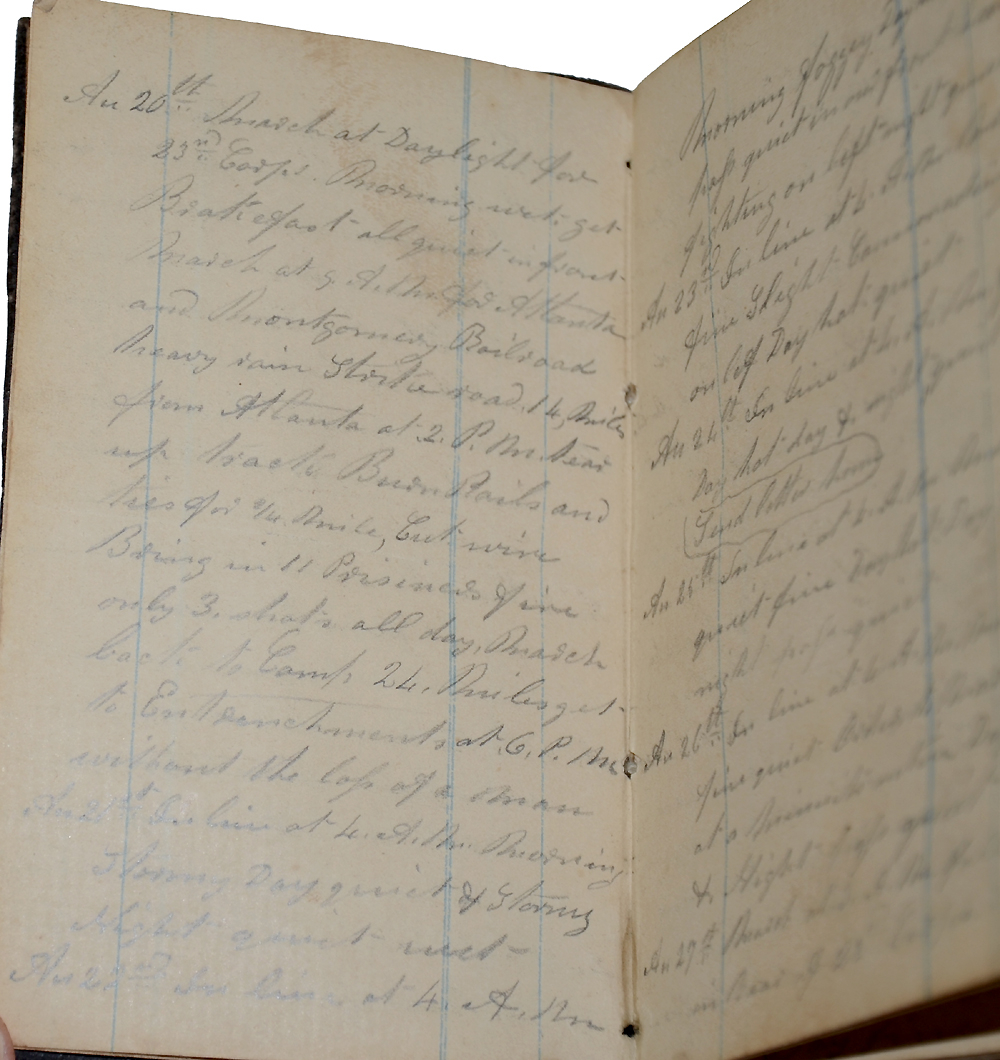 Au 20th March at Daylight for
23rd Corps. Morning wet. get
Brakefast all quiet in front
March at 9 A.M. for Atlanta
and Montgomery Railroad
heavy rain Strike road 14 Miles
from Atlanta at 2. P. M. tear
up track Burn Rails and
ties for 3/4 Mile, Cut wire
Bring in 11 Prisiners fire
only 3. shots all day, March
back to Camp 24. Miles get
to Entrenchments at 6. P. M.
without the loss of a man
Au 21st In line at 4. A. M. Morning
Stormy Day quiet & Stormy
Night quiet wet
Au 22nd In line at 4. A. M
Morning foggy Day
quiet in our front
fighting on left night
Au 23rd In line at 4. A. M.
fine Slight Cannonading
on left Day hot quiet
Au 24th In line at 4.
Day hot day & night
Send letter home
Au 25th In line at 4. A. M.
quiet fine Day
night
Au 26th In line at 4 A
fine quiet
at a
& Night
Au 27th March
in Rear of 23